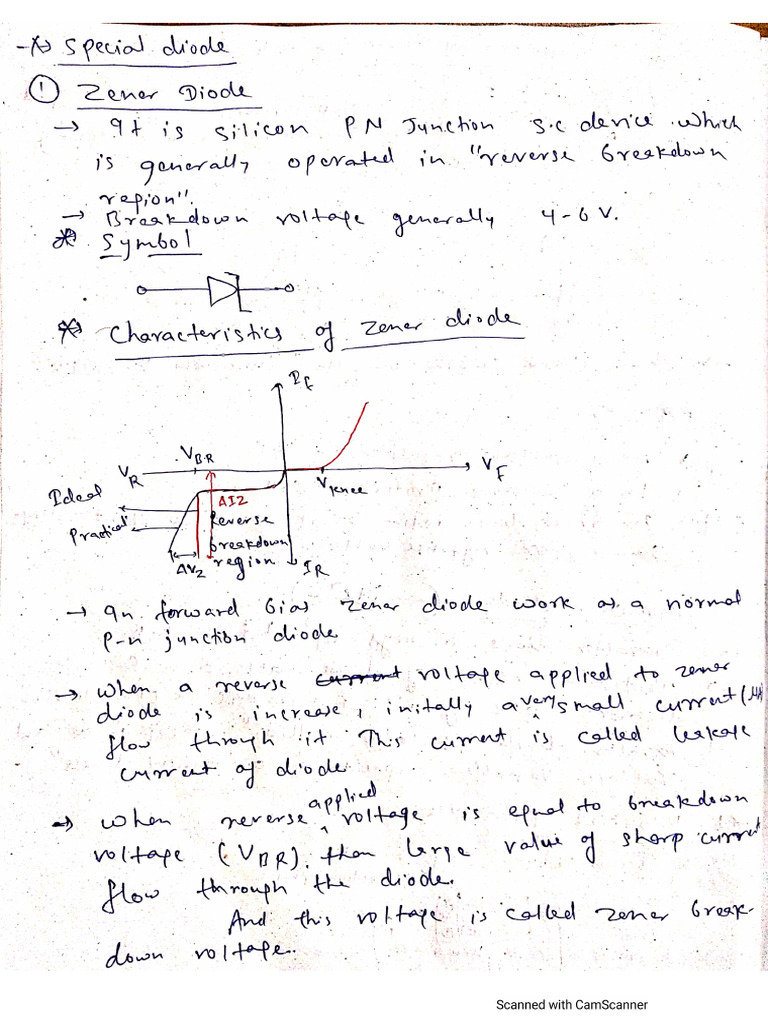 * Special diode
① Zener Diode
→ It is silicon PN Junction s.c device which
is generally operated in "reverse breakdown
region".
→ Breakdown voltage generally 4-6 V.
* Symbol
* Characteristics of zener diode
I_f
V_B.R
V_R
V_F
V_knee
Ideal
ΔIZ
Practical
Reverse
breakdown
region
ΔV_Z
I_R
→ In forward bias zener diode work as a normal
P-n junction diode.
→ When a reverse current voltage applied to zener
diode is increase, initally a very small current (μA)
flow through it This current is called leakage
current of diode.
→ When reverse applied voltage is equal to breakdown
voltage (V_BR). then large value of sharp current
flow through the diode.
And this voltage is called zener break-
down voltage.
Scanned with CamScanner